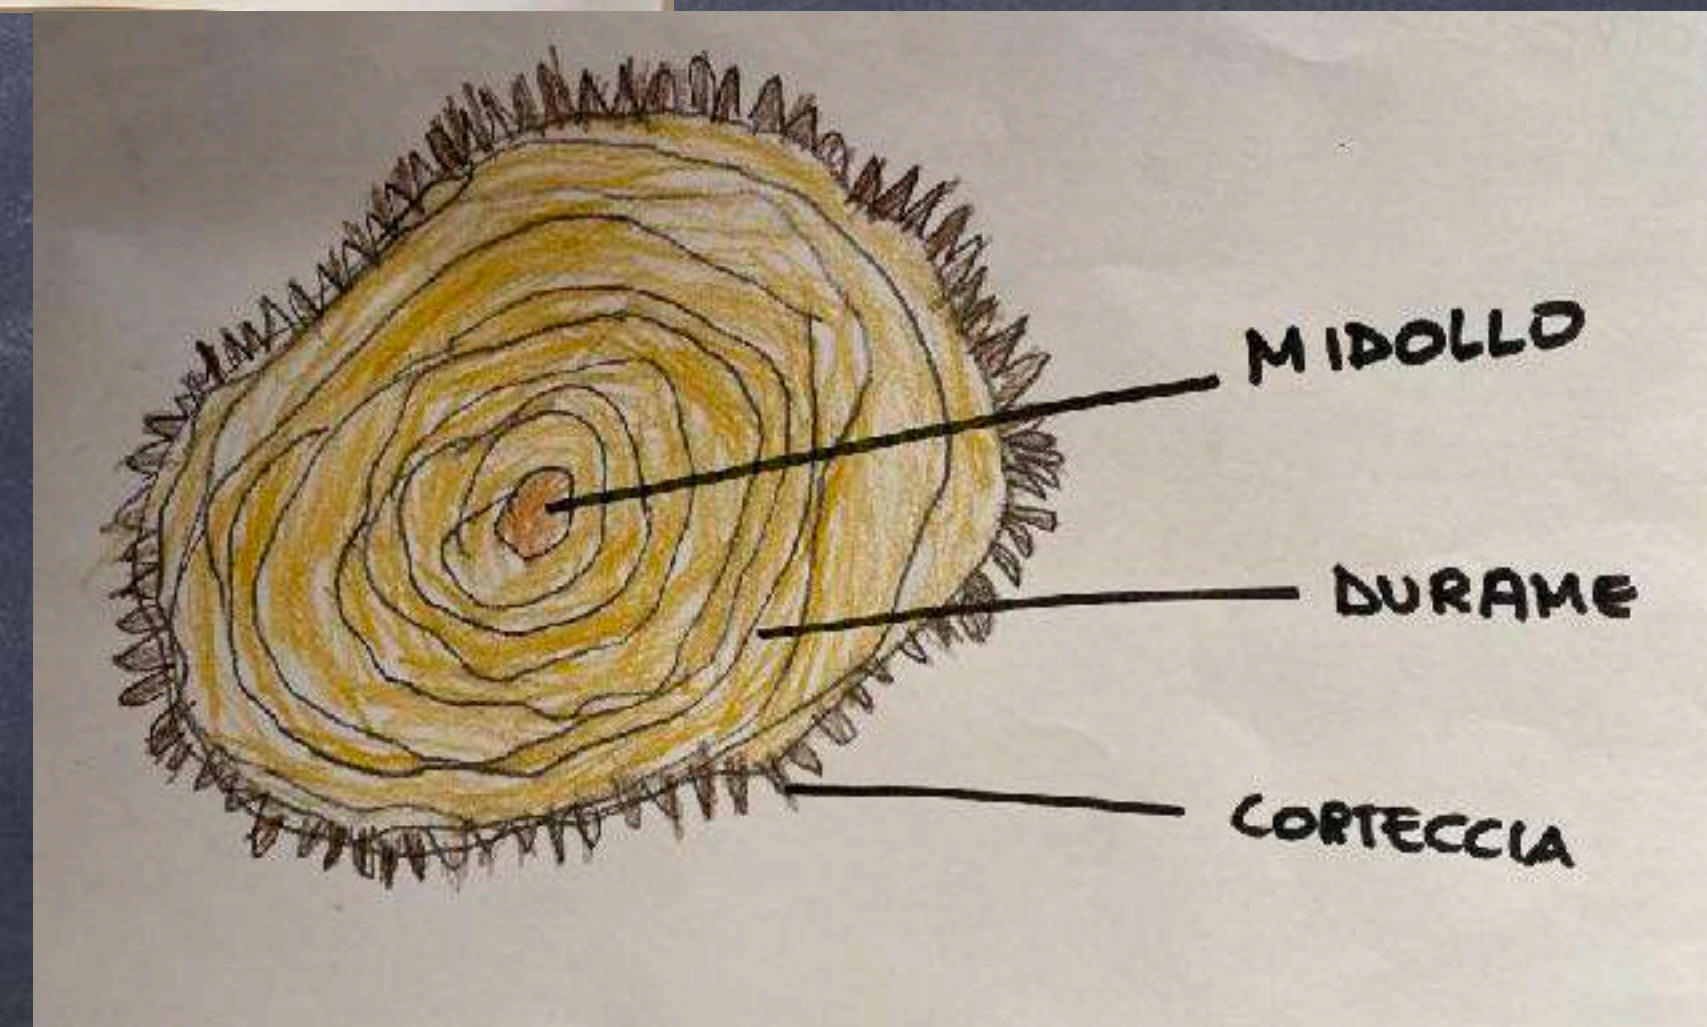 MIDOLLO
DURAME
CORTECCIA